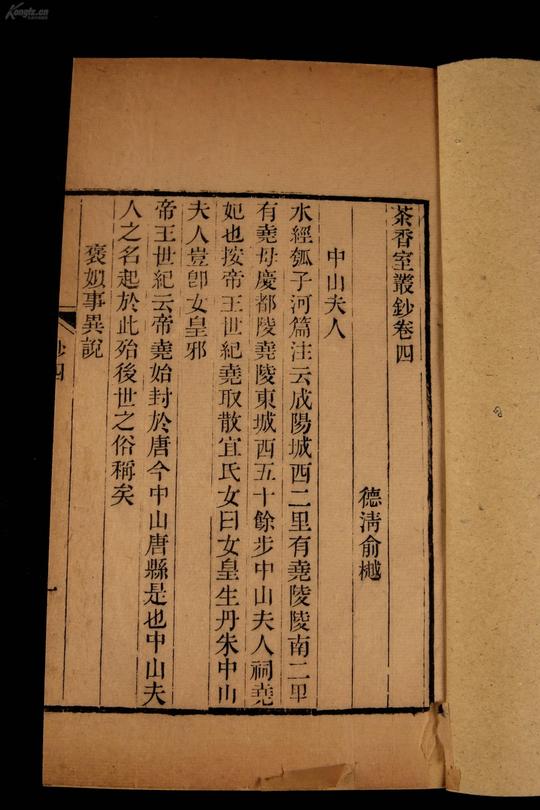 茶香室叢鈔卷四
德清俞樾
中山夫人
水經瓠子河篇注云成陽城西二里有堯陵陵南二里
有堯母慶都陵堯陵東城西五十餘步中山夫人祠堯
妃也按帝王世紀堯取散宜氏女曰女皇生丹朱中山
夫人豈卽女皇邪
帝王世紀云帝堯始封於唐今中山唐縣是也中山夫
人之名起於此殆後世之俗稱矣
褒姒事異說
鈔四
Kongfz.cn